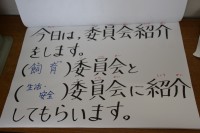 今日は、委員会紹介
をします。
(飼育)委員会と
(生活・安全)委員会に紹介
してもらいます。